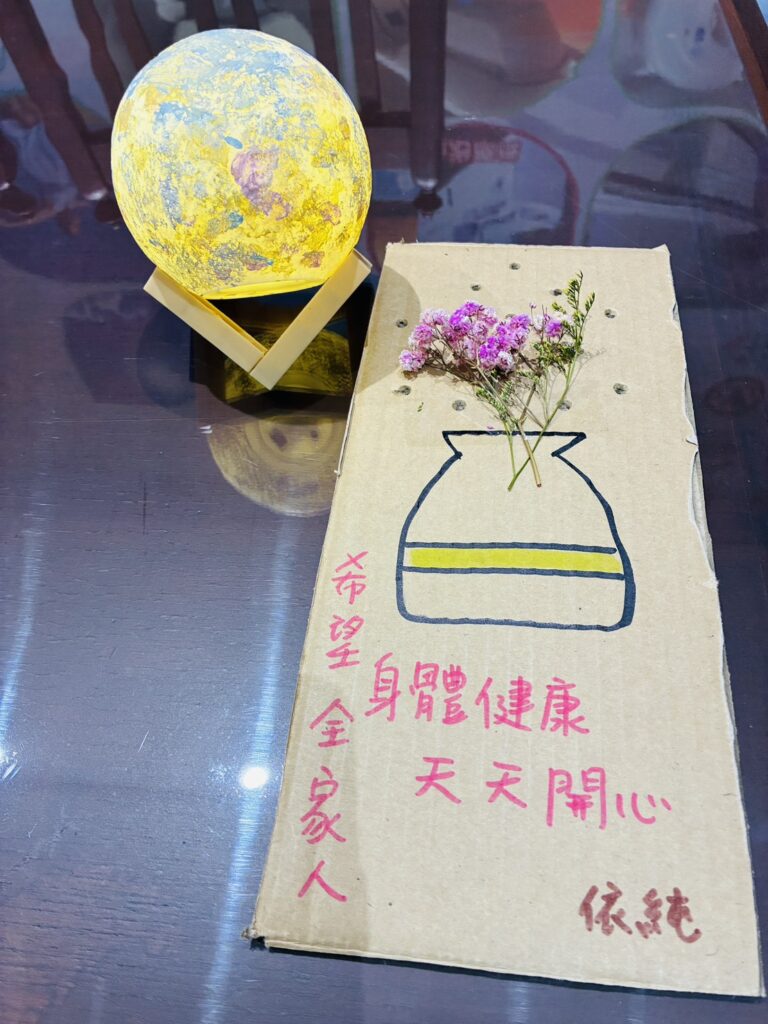 希望全家人
身體健康
天天開心
依純